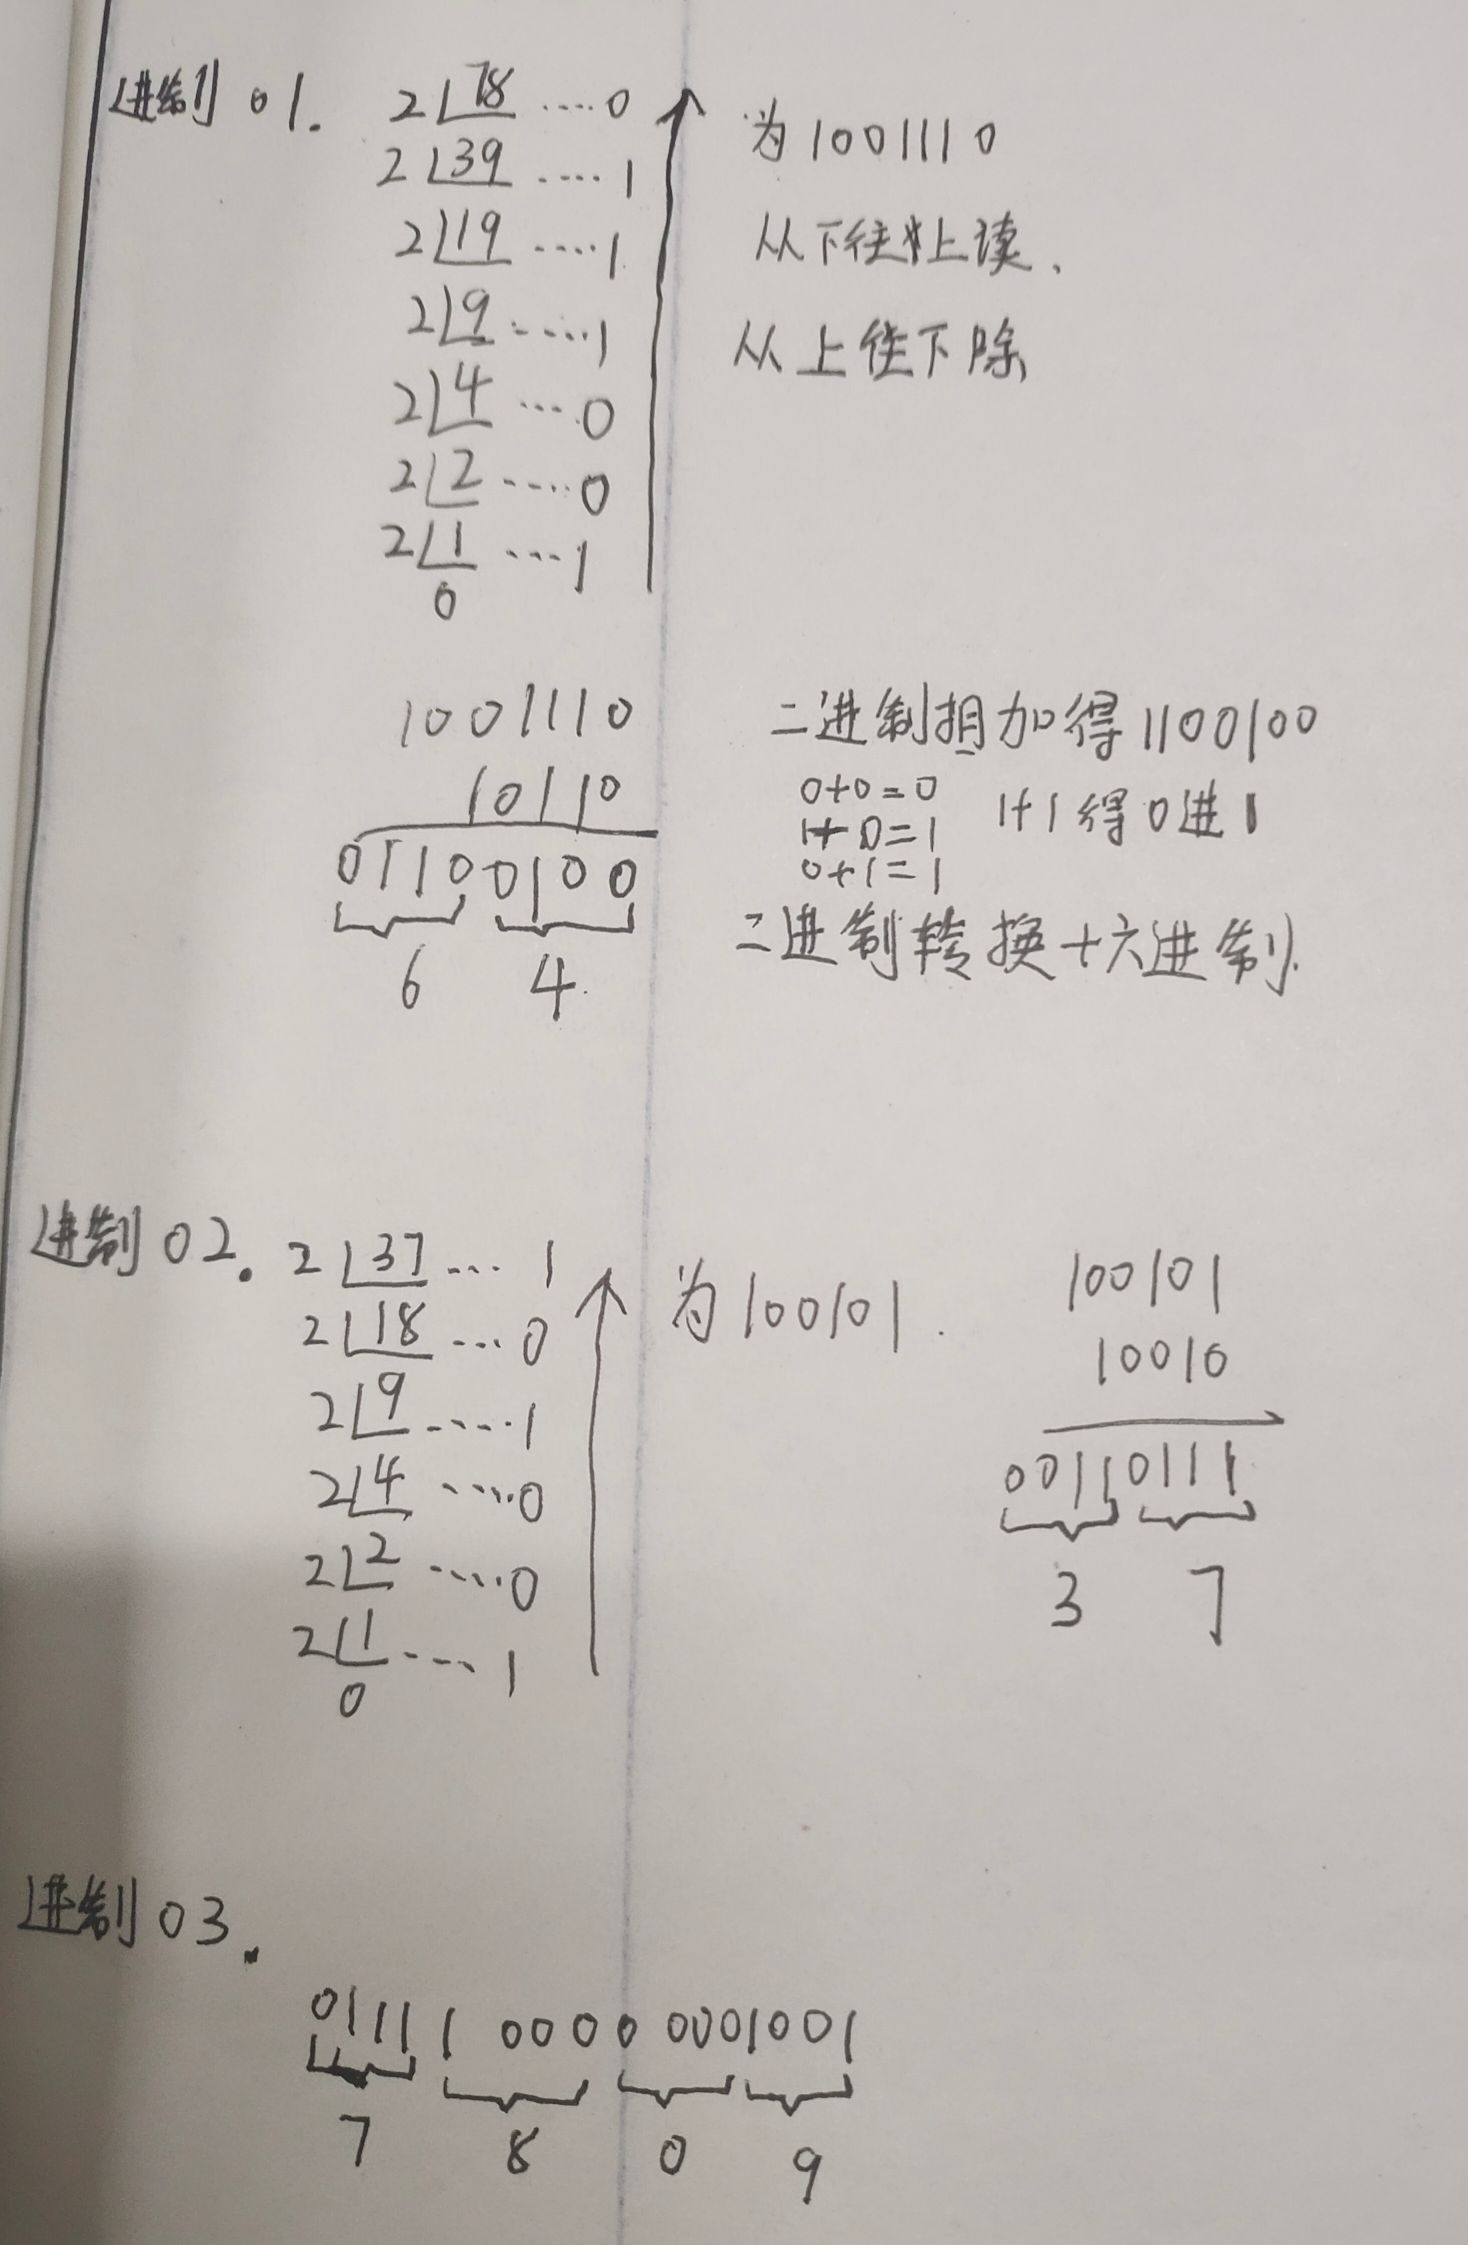 进制01.
2 78 ····0
2 39 ···· 1
2 19 ····1
2 9 ····1
2 4 ···0
2 2 ····0
2 1 ···1
0
为1001110
从下往上读、
从上往下除
1001110
10110
01100100
6 4
二进制相加得1100100
0+0=0
1+0=1
0+1=1
1+1得0进1
二进制转换十六进制.
进制02.
2 37 ··· 1
2 18 ···0
2 9 ····1
2 4 ····0
2 2 ····0
2 1 ···· 1
0
为100101.
100101
10010
00110111
3 7
进制03.
0111 1 000 0 0001001
7 8 0 9